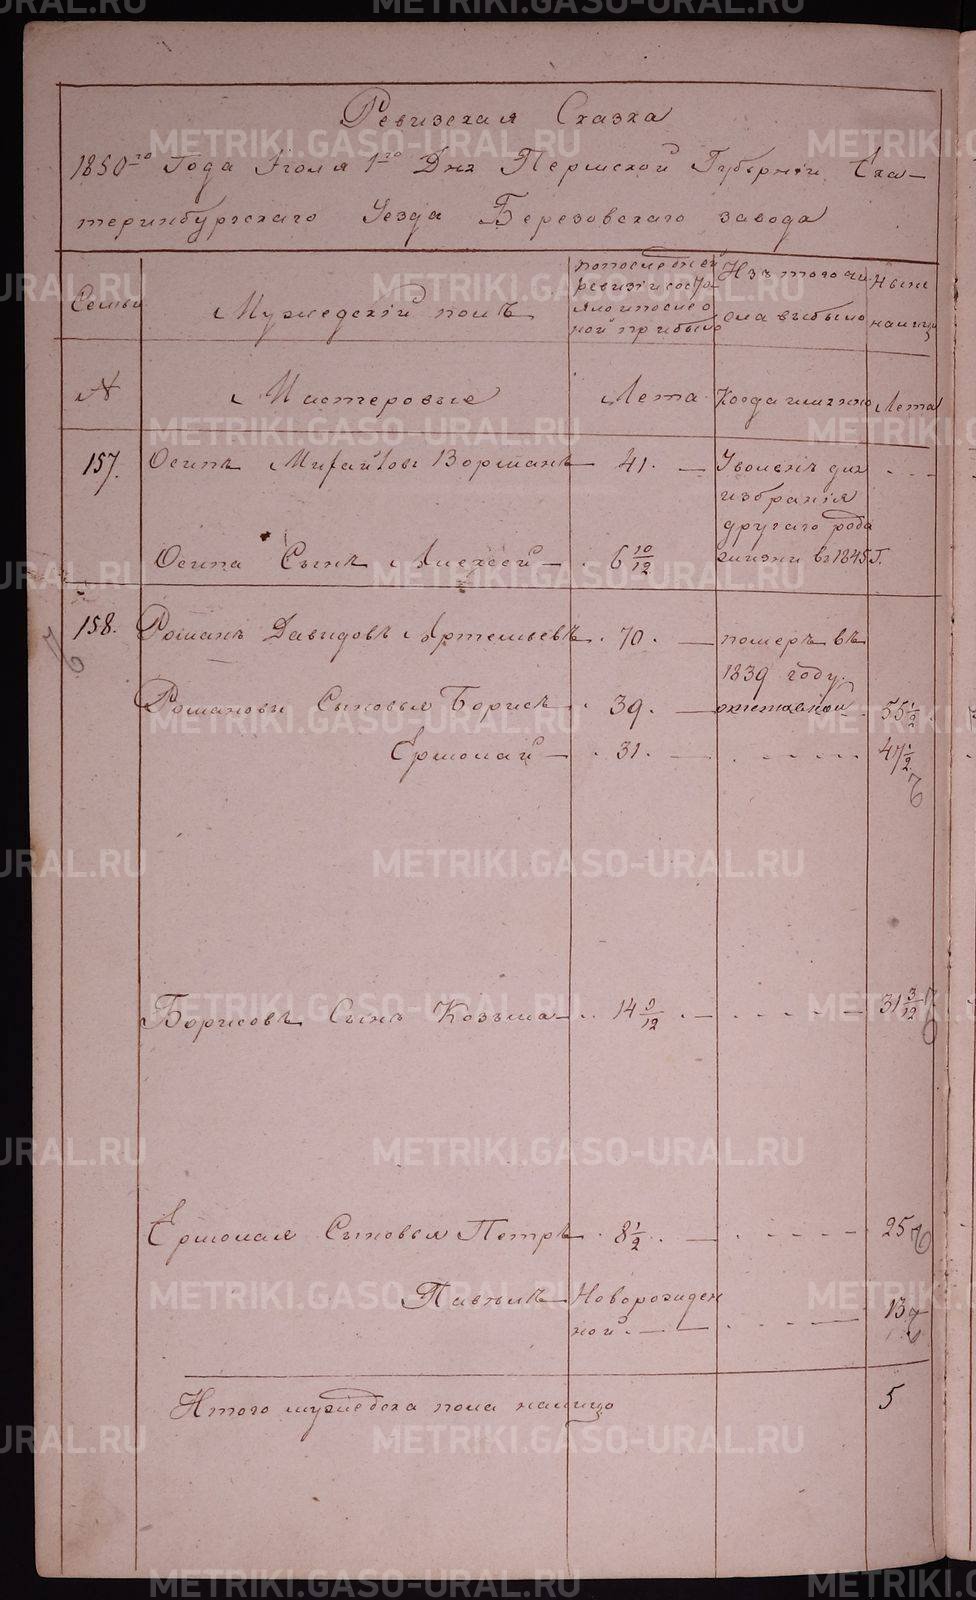 Ревизская Сказка
1850го Года Іюля 1го Дня Пермской Губерніи Ека-
теринбургскаго Уезда Березовскаго завода
Семьи
Мужескій полъ
по последней
ревизіи состо-
яло и после о
ной прибыло
Изъ того чи-
сла выбыло
Ныне
налицо
№
Мастеровые
Лета
Когда именно
Лета
157. Осипъ Михайловъ Ворманъ 41. Уволенъ для
избранія
другаго рода
Осипа Сынъ Алексей 6 10/12 жизни въ 1845 Г.
158. Романъ Давидовъ Артемьевъ 70. померъ въ
1839 году.
Романовы Сыновья Борисъ 39. отставной 55 1/2
Ермолай 31. 47 1/2
Борисовъ Сынъ Козьма 14 9/12 31 3/12
Ермолая Сыновья Петръ 8 1/2 25
Павелъ Новорожден
ной. 13
Итого мужеска пола налицо 5
METRIKI.GASO-URAL.RU